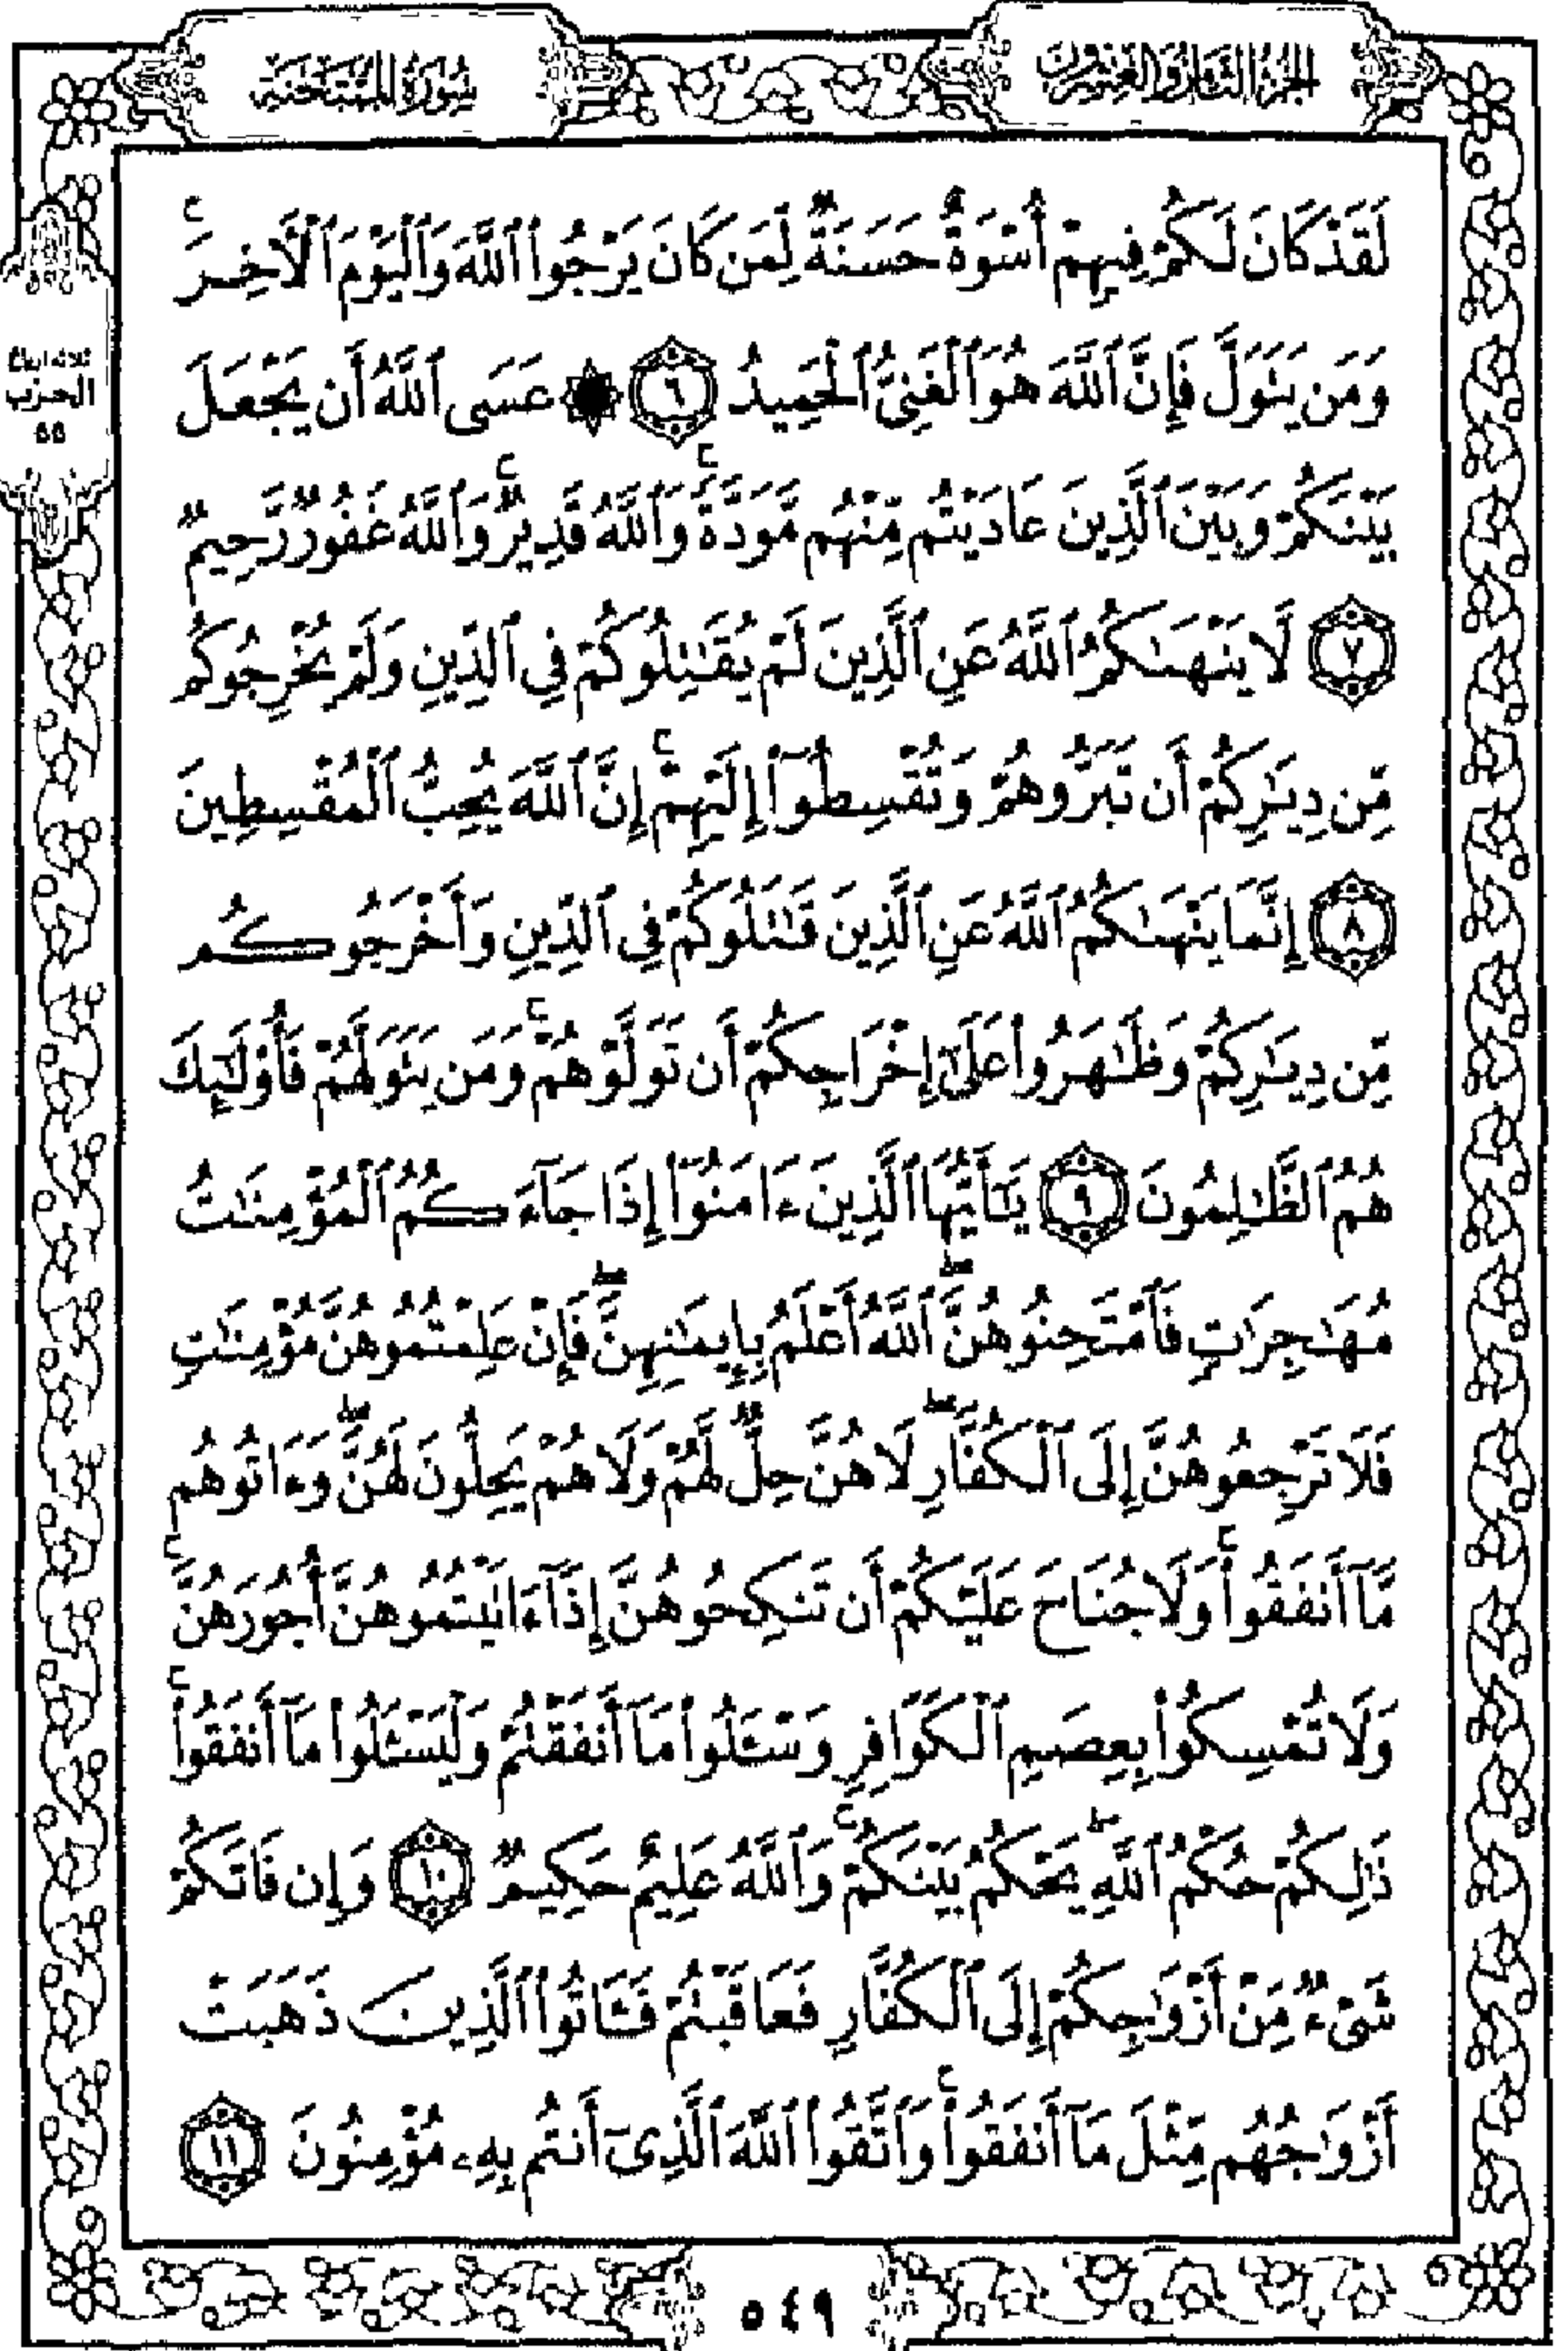 الجزء الثامن والعشرون
سورة الممتحنة
لَقَدْ كَانَ لَكُمْ فِيهِمْ أُسْوَةٌ حَسَنَةٌ لِّمَن كَانَ يَرْجُوا۟ ٱللَّهَ وَٱلْيَوْمَ ٱلْـَٔاخِرَ ۚ
وَمَن يَتَوَلَّ فَإِنَّ ٱللَّهَ هُوَ ٱلْغَنِىُّ ٱلْحَمِيدُ ٦ ۞ عَسَى ٱللَّهُ أَن يَجْعَلَ
ثلاثة أرباع
الحزب
٥٥
بَيْنَكُمْ وَبَيْنَ ٱلَّذِينَ عَادَيْتُم مِّنْهُم مَّوَدَّةً ۚ وَٱللَّهُ قَدِيرٌ ۚ وَٱللَّهُ غَفُورٌ رَّحِيمٌ
٧ لَّا يَنْهَىٰكُمُ ٱللَّهُ عَنِ ٱلَّذِينَ لَمْ يُقَـٰتِلُوكُمْ فِى ٱلدِّينِ وَلَمْ يُخْرِجُوكُم
مِّن دِيَـٰرِكُمْ أَن تَبَرُّوهُمْ وَتُقْسِطُوٓا۟ إِلَيْهِمْ ۚ إِنَّ ٱللَّهَ يُحِبُّ ٱلْمُقْسِطِينَ
٨ إِنَّمَا يَنْهَىٰكُمُ ٱللَّهُ عَنِ ٱلَّذِينَ قَـٰتَلُوكُمْ فِى ٱلدِّينِ وَأَخْرَجُوكُم
مِّن دِيَـٰرِكُمْ وَظَـٰهَرُوا۟ عَلَىٰٓ إِخْرَاجِكُمْ أَن تَوَلَّوْهُمْ ۚ وَمَن يَتَوَلَّهُمْ فَأُو۟لَـٰٓئِكَ
هُمُ ٱلظَّـٰلِمُونَ ٩ يَـٰٓأَيُّهَا ٱلَّذِينَ ءَامَنُوٓا۟ إِذَا جَآءَكُمُ ٱلْمُؤْمِنَـٰتُ
مُهَـٰجِرَٰتٍ فَٱمْتَحِنُوهُنَّ ۖ ٱللَّهُ أَعْلَمُ بِإِيمَـٰنِهِنَّ ۖ فَإِنْ عَلِمْتُمُوهُنَّ مُؤْمِنَـٰتٍ
فَلَا تَرْجِعُوهُنَّ إِلَى ٱلْكُفَّارِ ۖ لَا هُنَّ حِلٌّ لَّهُمْ وَلَا هُمْ يَحِلُّونَ لَهُنَّ ۖ وَءَاتُوهُم
مَّآ أَنفَقُوا۟ ۚ وَلَا جُنَاحَ عَلَيْكُمْ أَن تَنكِحُوهُنَّ إِذَآ ءَاتَيْتُمُوهُنَّ أُجُورَهُنَّ ۚ
وَلَا تُمْسِكُوا۟ بِعِصَمِ ٱلْكَوَافِرِ وَسْـَٔلُوا۟ مَآ أَنفَقْتُمْ وَلْيَسْـَٔلُوا۟ مَآ أَنفَقُوا۟ ۚ
ذَٰلِكُمْ حُكْمُ ٱللَّهِ ۖ يَحْكُمُ بَيْنَكُمْ ۚ وَٱللَّهُ عَلِيمٌ حَكِيمٌ ١٠ وَإِن فَاتَكُمْ
شَىْءٌ مِّنْ أَزْوَٰجِكُمْ إِلَى ٱلْكُفَّارِ فَعَاقَبْتُمْ فَـَٔاتُوا۟ ٱلَّذِينَ ذَهَبَتْ
أَزْوَٰجُهُم مِّثْلَ مَآ أَنفَقُوا۟ ۚ وَٱتَّقُوا۟ ٱللَّهَ ٱلَّذِىٓ أَنتُم بِهِۦ مُؤْمِنُونَ ١١
٥٤٩